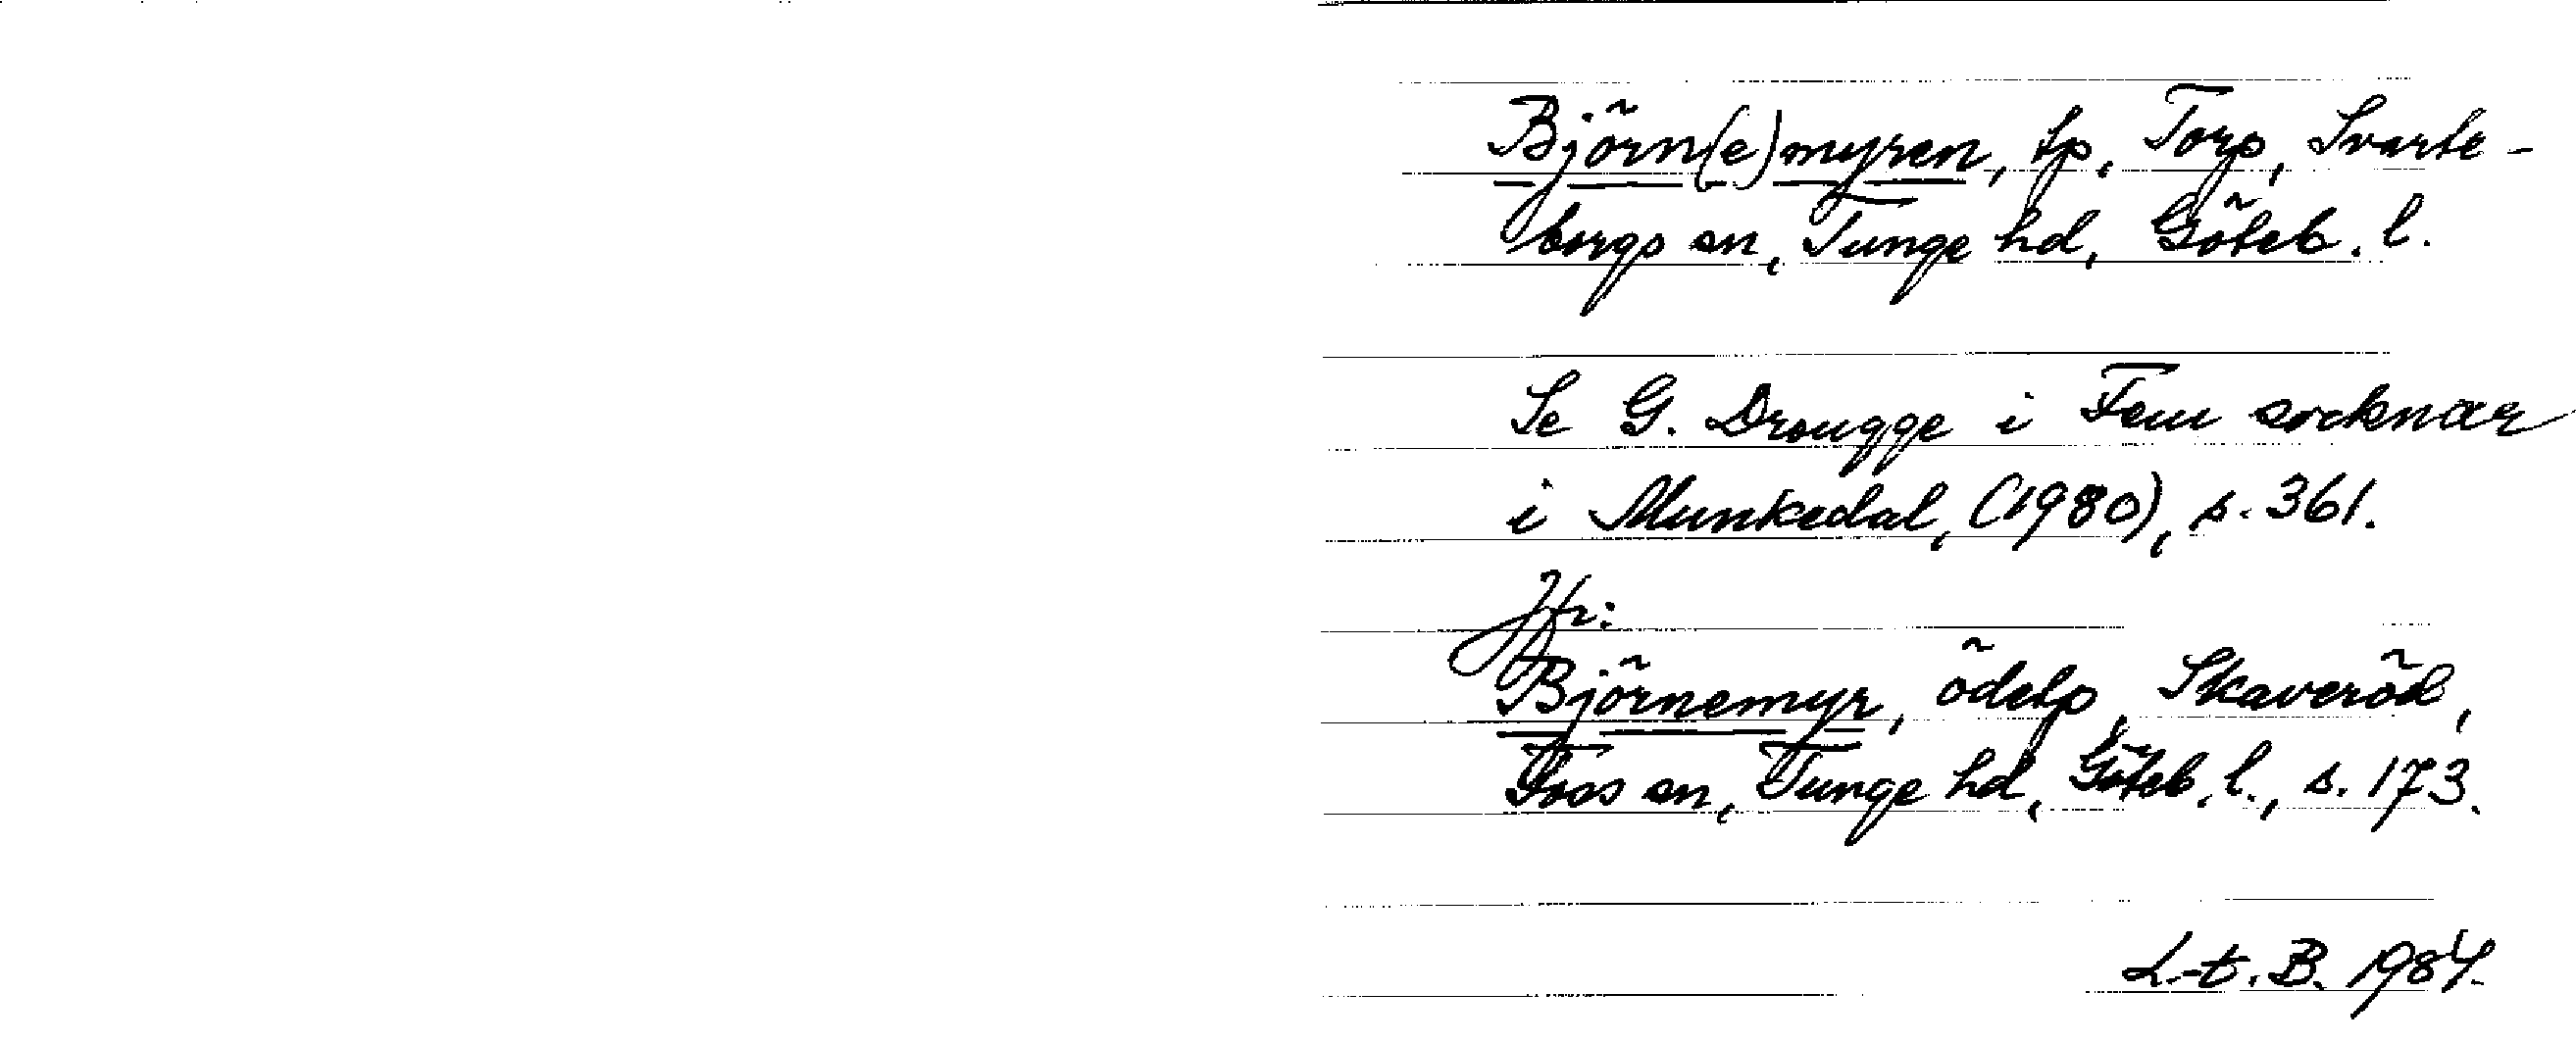 Björn(e)myren, tp, Torp, Svarte-
borgs sn, Tunge hd, Göteb. l.
Se G. Drougge i Fem socknar
i Munkedal, (1980), s. 361.
Jfr:
Björnemyr, ödetp, Skaveröd,
Foss sn, Tunge hd, Göteb. l., s. 173.
L-t. B. 1984.